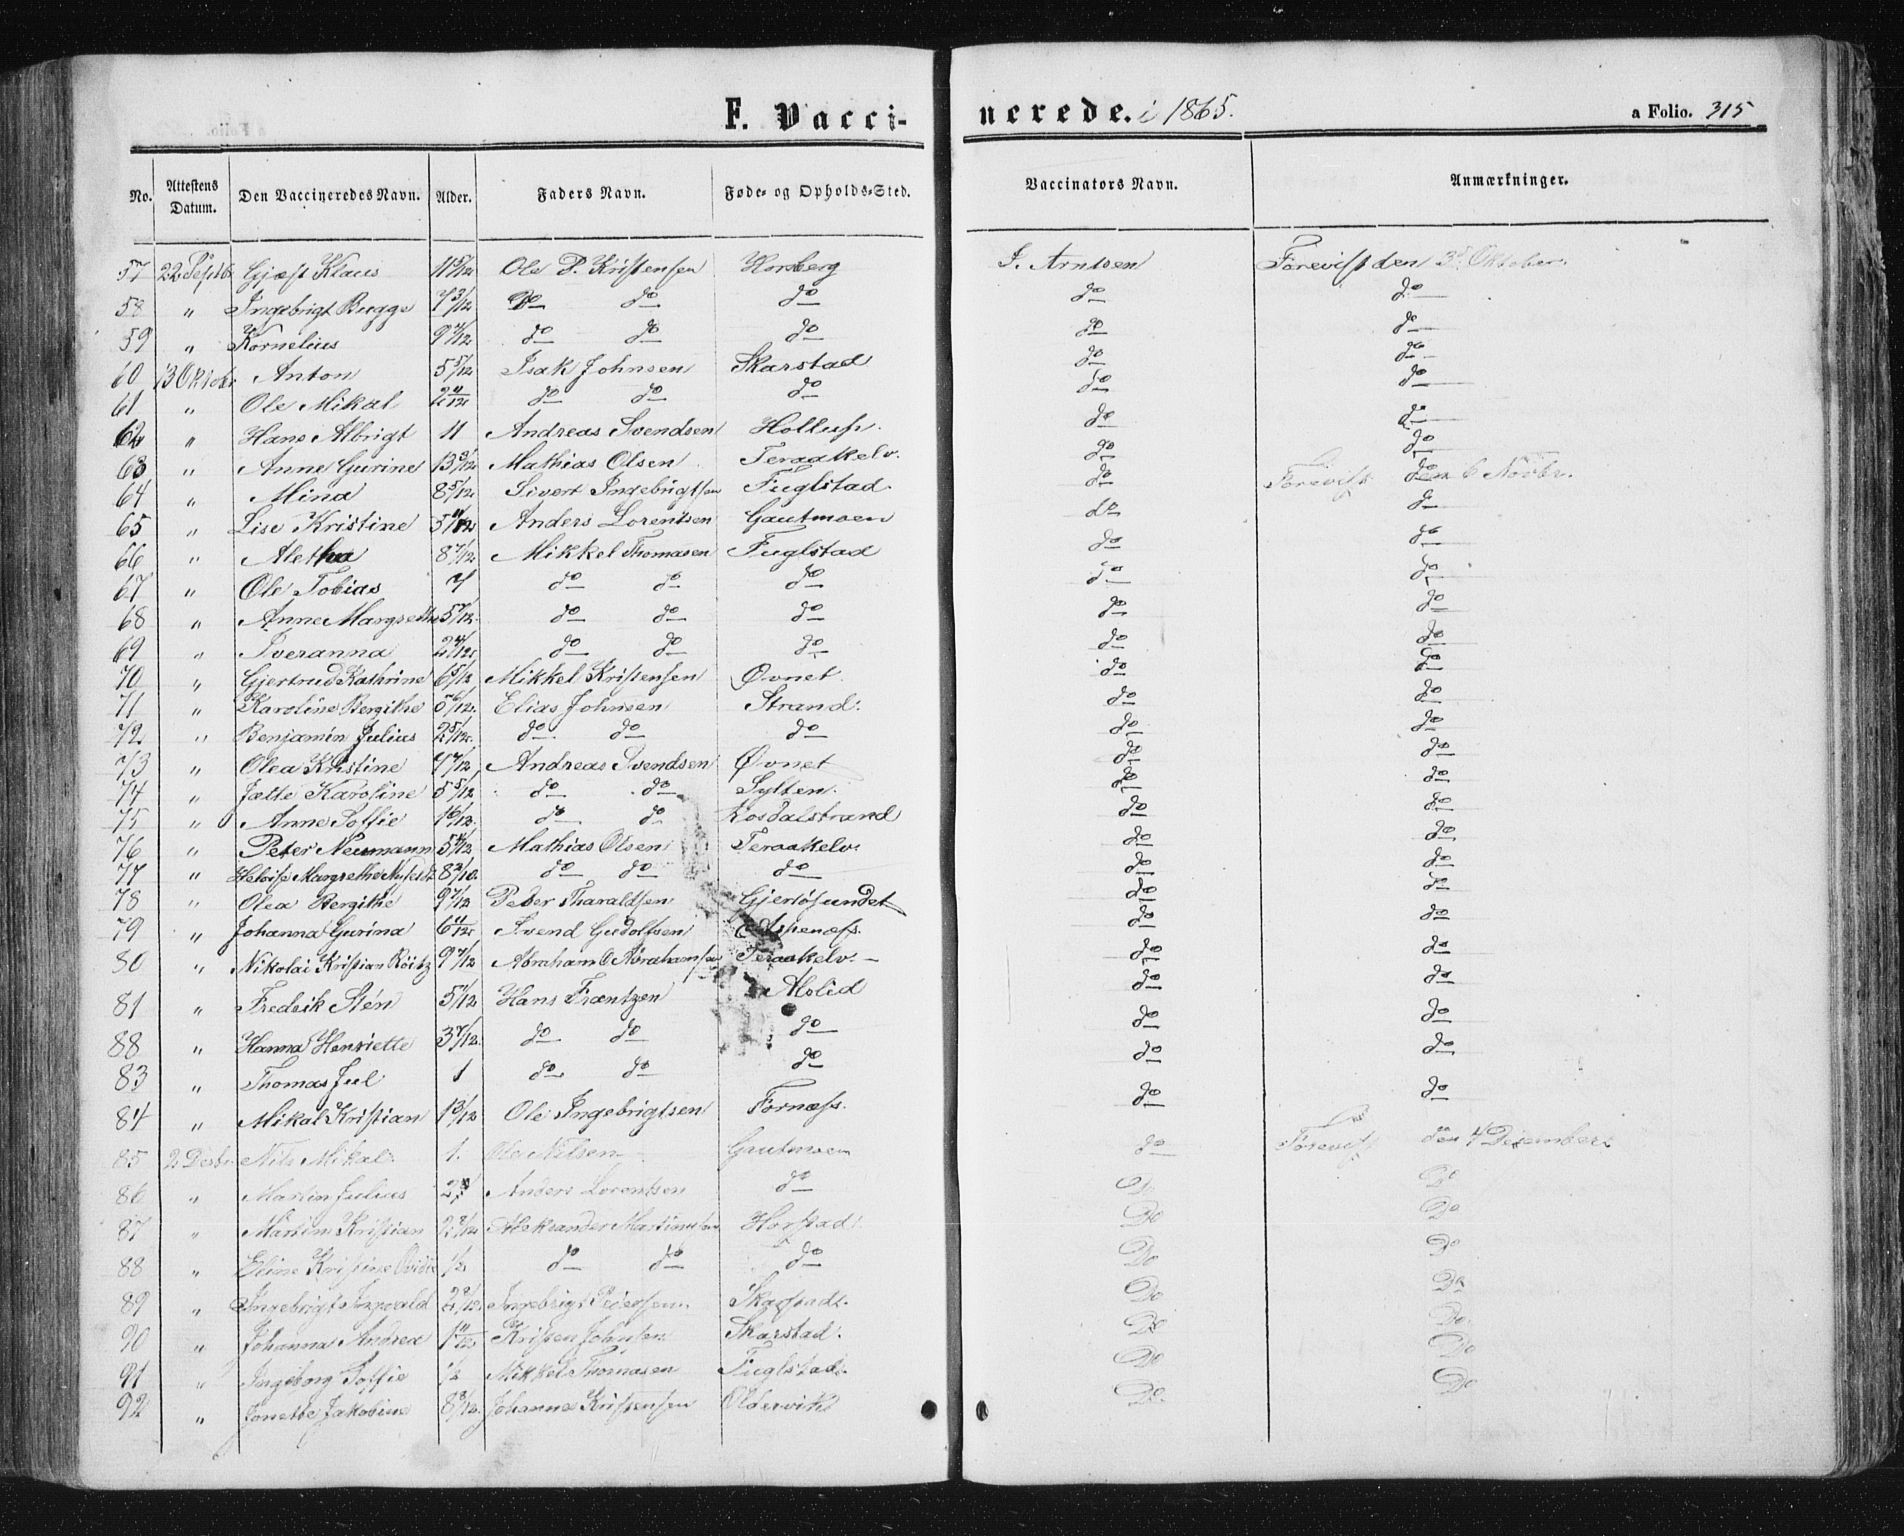 F. Vaccinerede. i 1865.
a Folio. 315
No. Attestens Datum. Den Vaccineredes Navn. Alder. Faders Navn. Føde- og Opholds-Sted. Vaccinators Navn. Anmærkninger.
57 22 Septb Gjæst Klaus 11 5/12 Ole P. Kristensen Horsberg J. Arntsen Forevist den 3d Oktober.
58 " Ingebrigt Bugge 7 3/12 do do do do do
59 " Kornelius 9 7/12 do do do do do
60 13 Oktob Anton 5 5/12 Isak Johnsen Skarstad do do
61 " Ole Mikal 2 11/12 do do do do do
62 " Hans Albrigt 11 Andreas Svendsen do do
63 " Anne Gurine 13 3/12 Mathias Olsen Teraakelv. do do
64 " Mina 8 5/12 Sivert Ingebrigtsen Fuglstad do Forevist den 6 Novbr.
65 " Lise Kristine 5 11/12 Anders Lorentsen Gautmoen do do
66 " Aletha 8 7/12 Mikkel Thomasen Fuglstad do do
67 " Ole Tobias 7 do do do do do
68 " Anne Margrethe 5 7/12 do do do do do
69 " Iveranna 2 4/12 do do do do do
70 " Gjertrud Kathrine 6 5/12 Mikkel Kristensen Øvnet do do
71 " Karoline Bergithe 5 6/12 Elias Johnsen Strand. do do
72 " Benjamin Julius 2 5/12 do do do do do
73 " Olea Kristine 7 7/12 Andreas Svendsen Øvnet do do
74 " Jætte Karoline 5 5/12 do do Sylten. do do
75 " Anne Soffie 1 6/12 do do Kosdalstrand do do
76 " Peter Neumann 5 11/12 Mathias Olsen Teraakelv. do do
77 " Heloise Margrethe 8 3/10 do do do do do
78 " Olea Bergithe 9 7/12 Peder Tharaldsen Gjerløsundet do do
79 " Johanna Gurina 6 11/12 Svend Gudolfsen Aspenæs. do do
80 " Nikolai Kristian Röitz 9 7/12 Abraham O Abrahamsen Teraakelv. do do
81 " Fredrik Stén 5 1/12 Hans Frantzen Alolid do do
88 " Hanna Henriette 3 7/12 do do do do do
83 " Thomas Juel 1 do do do do do
84 " Mikal Kristian 1 3/12 Ole Ingebrigtsen Fornæss. do do
85 2 Desbr Nils Mikal 1. Ole Nilsen Gautmoen do Forevist den 4 Desember
86 " Martin Julius Anders Lorentsen do Do Do
87 " Martin Kristian 2 8/12 Aleksander Martinusen Horstad. Do Do
88 " Eline Kristine 1/2 do do do Do Do
89 " Ingebrigt Ingvald 2 9/12 Ingebrigt Pedersen Skarstad. Do Do
90 " Johanna Andrea 1 11/12 Kristen Johnsen Skarstad. Do Do
91 " Ingeborg Soffie 1/2 Mikkel Thomasen Fuglstad. Do Do
92 " Jonette Jakobine 8 8/12 Johannes Kristensen Oldervik Do Do